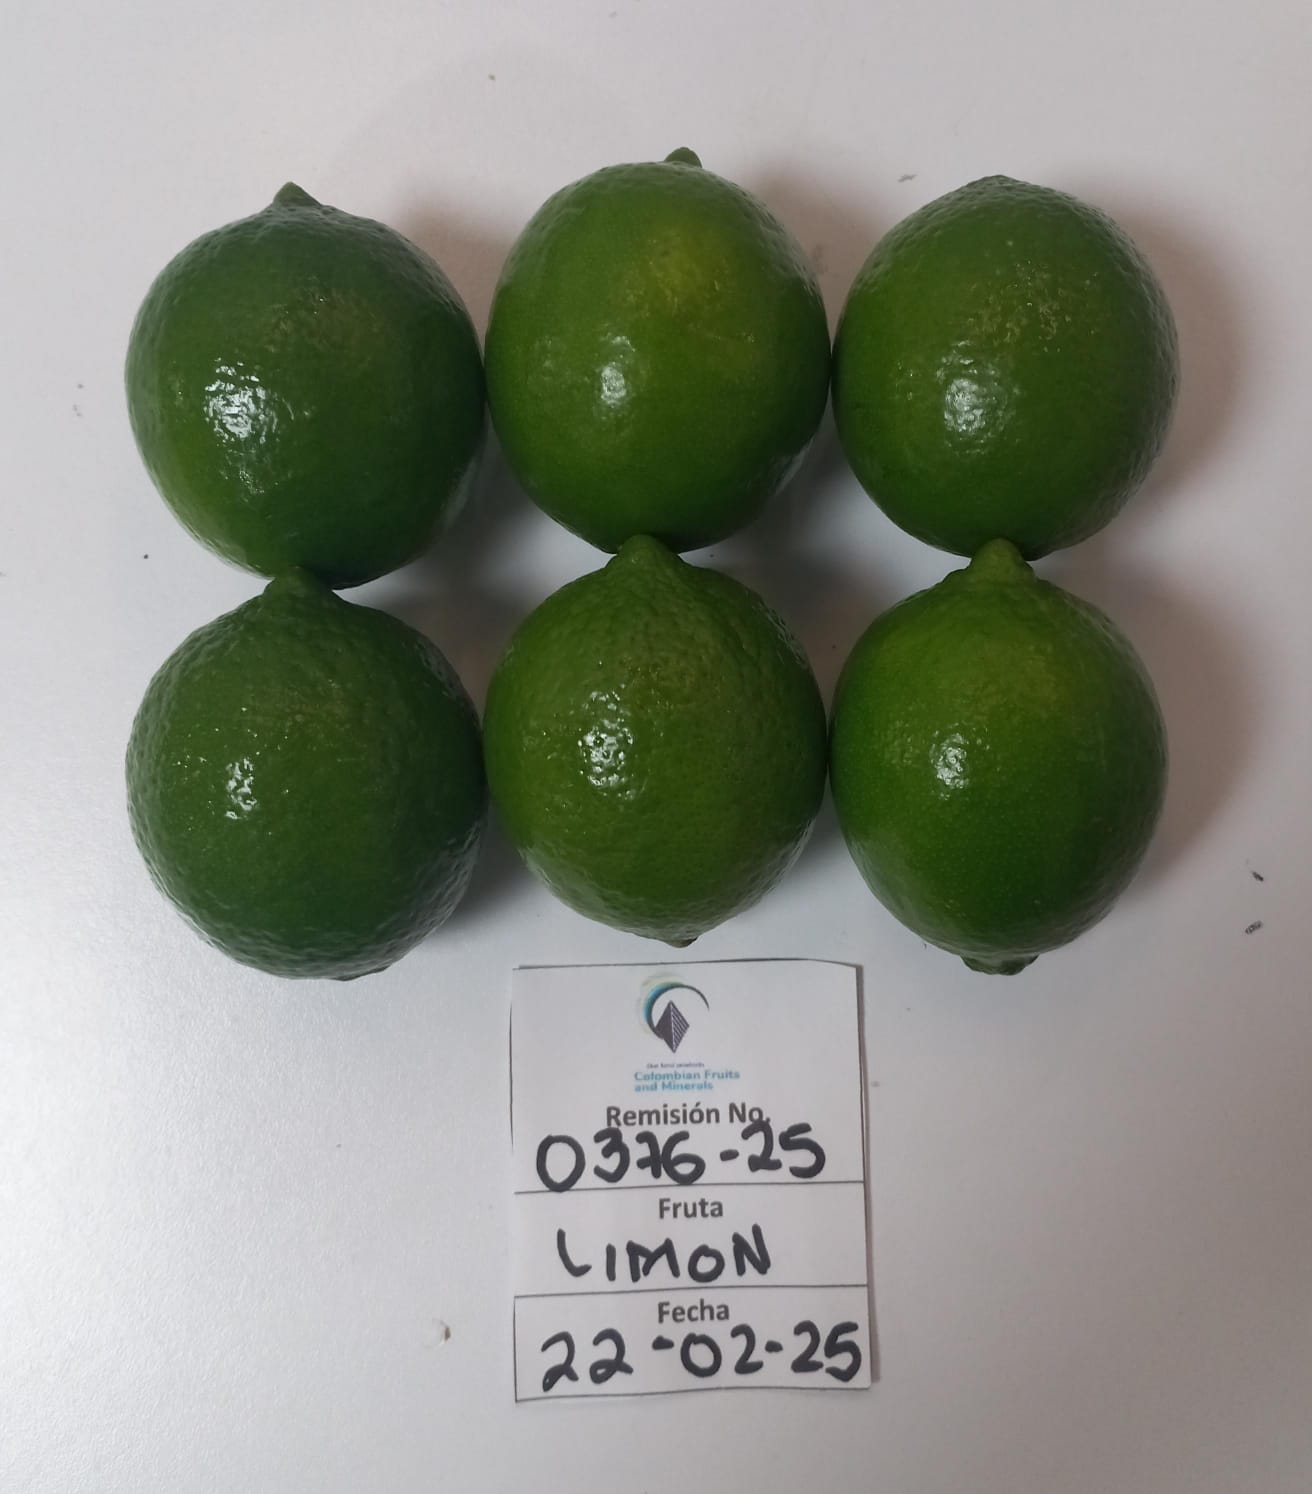 Our best products
Colombian Fruits
and Minerals
Remisión No.
0376-25
Fruta
LIMON
Fecha
22-02-25